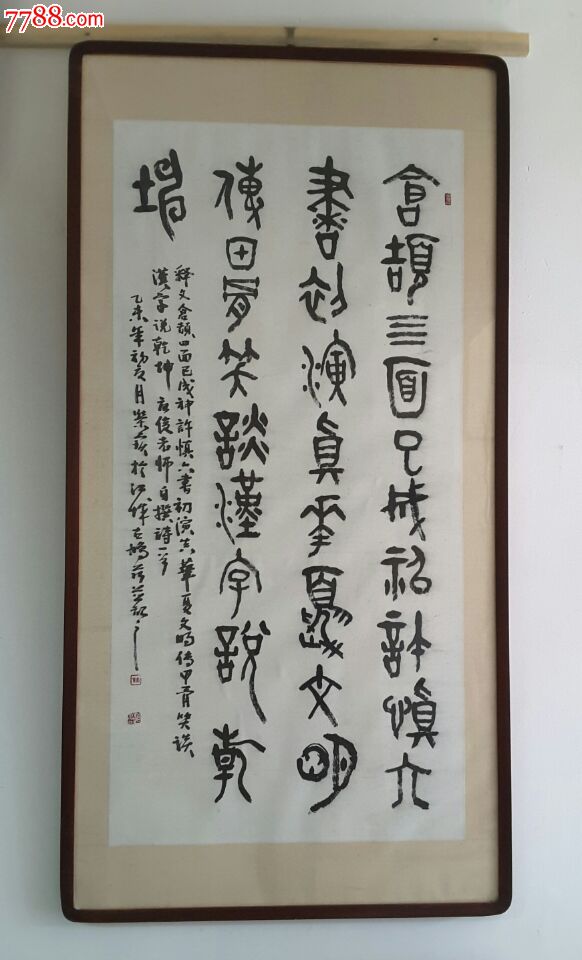 7788.com
倉頡亖面已成神許慎六
書初演真華夏文明
傳甲骨笑談漢字說乾
坤
釋文倉頡四面已成神許慎六書初演真華夏文明傳甲骨笑談
漢字说乾坤 老師自撰詩一首
乙未年初夏月 於江